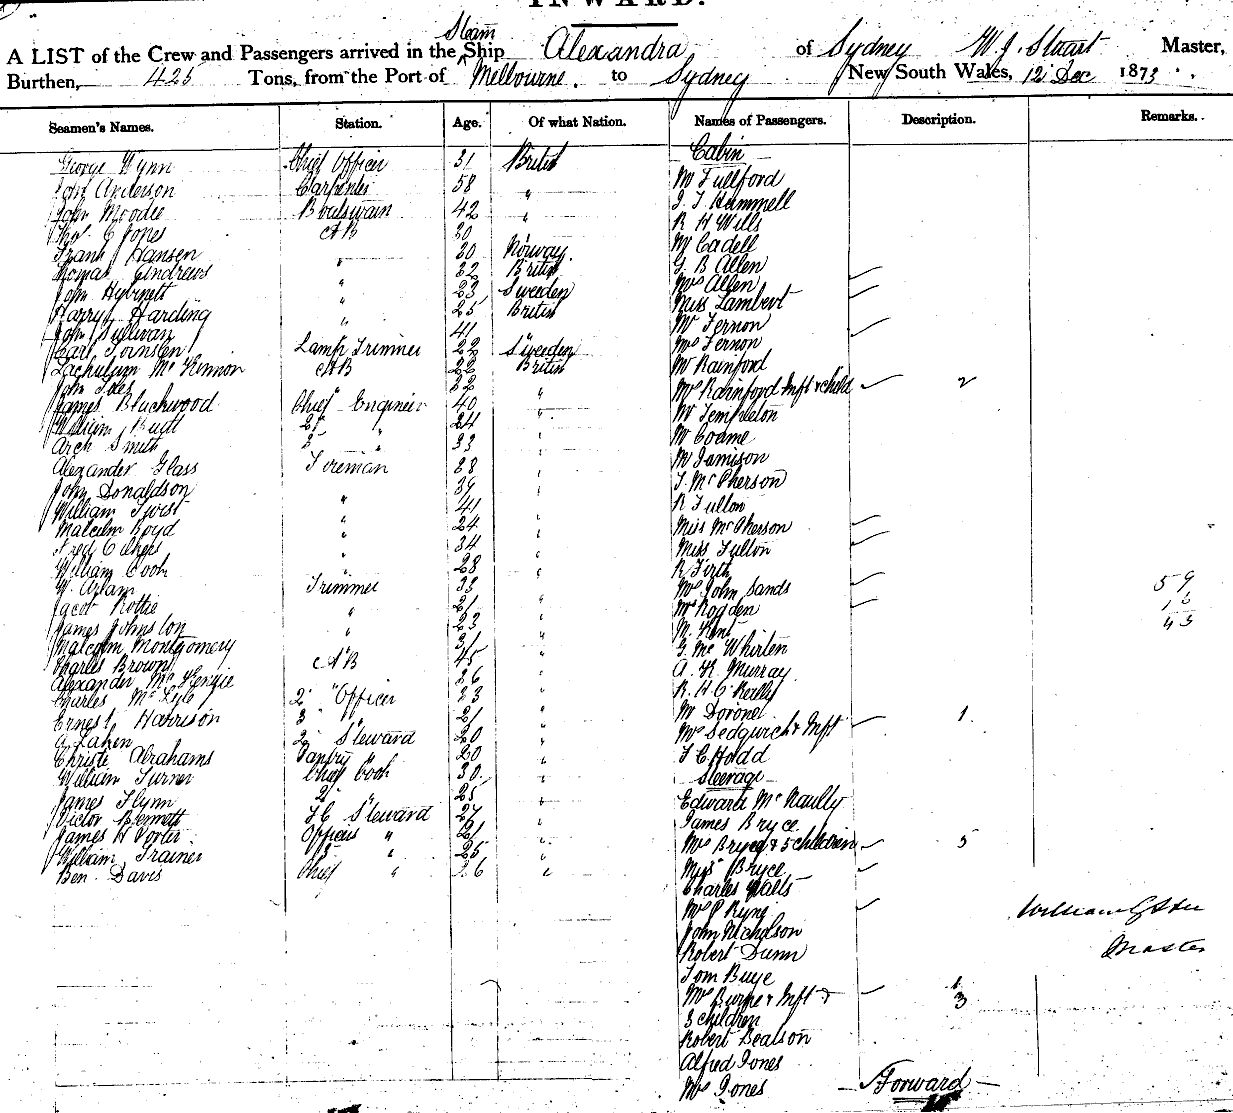 INWARD.
A LIST of the Crew and Passengers arrived in the Steam Ship Alexandra of Sydney W. J. Stuart Master,
Burthen, 425 Tons, from the Port of Melbourne. to Sydney New South Wales, 12 Dec 1873
Seamen's Names. Station. Age. Of what Nation. Names of Passengers. Description. Remarks.
George Wynn Chief Officer 31 British Cabin
John Anderson Carpenter 58 " Mr Fullford
John Moodie Boatswain 42 " J. T Hammell
C Jones AB 30 R H Wills
Frank Hansen " 30 Norway. Mr Cadell
Thomas Andrews 32 British G B Allen
John Hybinett " 23 Sweeden Mrs Allen
Harry Harding " 25 British Miss Lambert
John Sullivan " 41 Mr Fernon
Carl Lamp Trimmer 22 Sweeden Mrs Fernon
Mc Kinnon AB 22 British Mr Rainford
John 22 Mrs Rainford Inft & child 2
James Blackwood Chief Engineer 40 " Mr Templeton
William 2d " 24 " Mr Coame
Arch Smith 3 " 33 " Mr Jamison
Alexander Glass Fireman 28 " McPherson
John Donaldson 39 " R Fullon
William " 41 "
Malcolm Boyd " 24 " Miss McPherson
Fred " 34 " Miss Fulton
William Cook " 28 " R Firth
W. Trimmer 33 " Mrs John Sands 59
Jacob Rottie " 21 " Mrs Rodden 16
James Johnston " 23 " Kent 43
Malcolm Montgomery 31 " G. Mc Whirten
Charles Brown AB 45 " A. K. Murray
Alexander McKenzie 36 R. H O'Reilly
Charles McLyle 2d Officer 23 "
Ernest Harrison 3 " 21 " Mrs Sedgwick & Inft 1.
A 2 Steward 20 "
Christie Abrahams Pantry " 20
William Turner Chief Cook 30. " Steerage
James Flynn 2 " 25 " Edward McNaully
Victor Bennett F C Steward 27 " James Bryce
James H Porter Officers " 21 " Mrs Bryce & 5 children 5
William Trainer " 25 " Miss Bryce
Ben Davis Chief " 26 " Charles Watts
Mrs P
John Nicholson
Robert Dunn
Tom
Mrs Burne & Inft & 1
3 children 3
Robert Beatson
Alfred Jones
Mrs Jones
William
Master
Forward